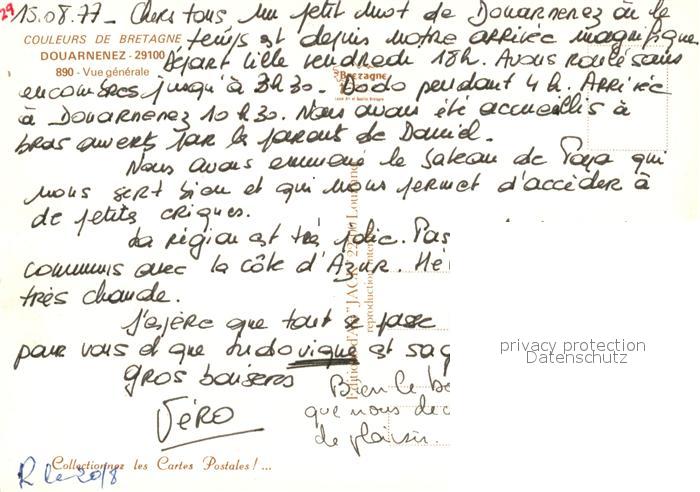 29
15.08.77 - Chers tous, un petit mot de Douarnenez où le
COULEURS DE BRETAGNE
temps est depuis notre arrivée magnifique.
DOUARNENEZ - 29100
890 - Vue générale
Départ Lille vendredi 18h. Avons roulé sans
Bretagne
encombres jusqu'à 3h30. Dodo pendant 4h. Arrivée
à Douarnenez 10h30. Nous avons été accueillis à
bras ouverts par les parents de Daniel.
Nous avons emmené le bateau de Papa qui
nous sert bien et qui nous permet d'accéder à
de petits criques.
La région est très jolie. Pas
communs avec la côte d'Azur.
très chaude.
J'espère que tout se passe
pour vous et que Ludovique est sag
Gros baisers
Véro
Bien le bo
que nous de
de plaisir.
"JACK"
reproduction inter
privacy protection
Datenschutz
Collectionnez les Cartes Postales ! ...
R le 20/8